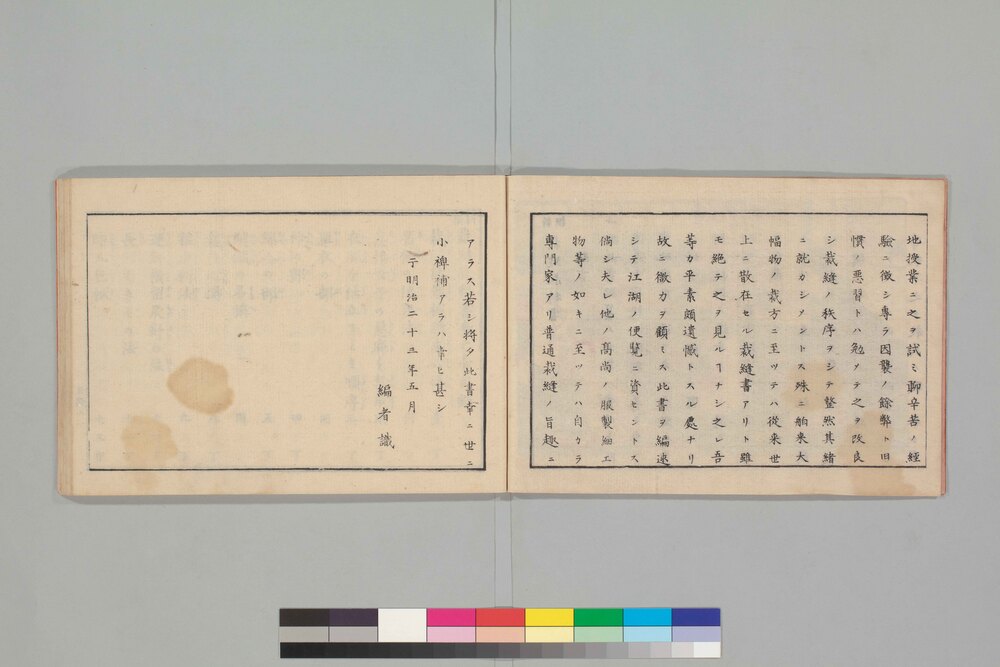 地授業ニ之ヲ試ミ聊辛苦ノ經
驗ニ徴シ專ラ因襲ノ餘弊ト旧
慣ノ悪習トハ勉メテ之ヲ改良
シ裁縫ノ秩序ヲシテ整然其緒
ニ就カシメントス殊ニ舶来大
幅物ノ裁方ニ至ツテハ從来世
上ニ散在セル裁縫書アリト雖
モ絶テ之ヲ見ルヿナシ之レ吾
等カ平素頗遺憾トスル處ナリ
故ニ微力ヲ顧ミス此書ヲ編述
シテ江湖ノ便覧ニ資セントス
倘シ夫レ他ノ髙尚ノ服製細工
物等ノ如キニ至ツテハ自カラ
專門家アリ普通裁縫ノ旨趣ニ
アラス若シ將タ此書幸ニ世ニ
小裨補アラハ幸ヒ甚シ
于明治二十三年五月
編者識